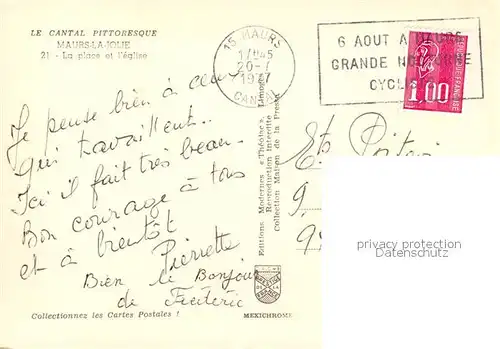 LE CANTAL PITTORESQUE
MAURS-LA-JOLIE
21 - La place et l'église
15 MAURS
17H45
20-7
1977
CANTAL
6 AOUT A MAURS
GRANDE NOCTURNE
CYCLISTE
1.00
Je pense bien à ceux
qui travaillent..
Ici il fait très beau.
Bon courage à tous
et à bientôt
Pierrette
Bien le Bonjour
de Frédéric
Editions Modernes « Théojac » Limoges
Reproduction Interdite
Collection Maison de la Presse
Ets
9
9
privacy protection
Datenschutz
Collectionnez les Cartes Postales !
MEXICHROME